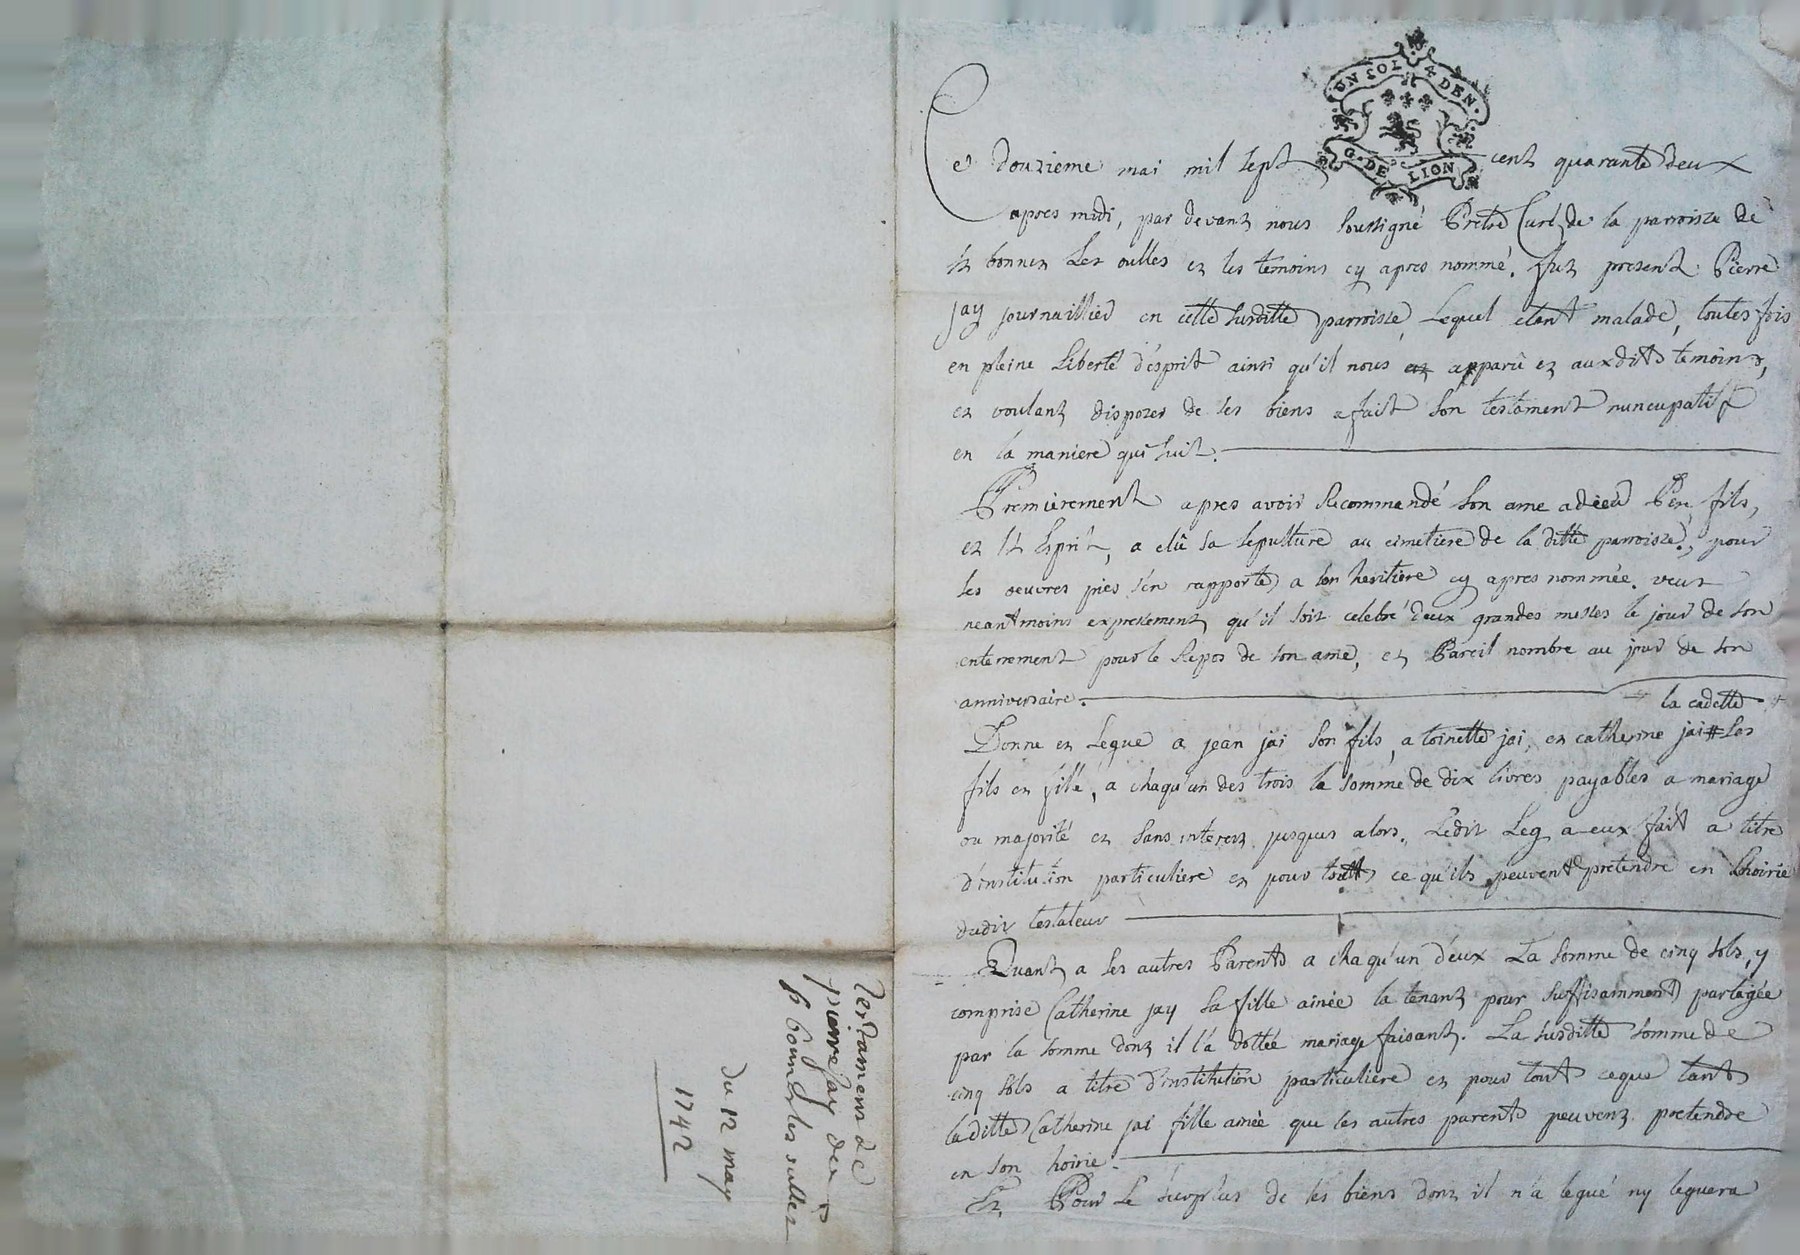 UN SOL 4 DEN.
G. DE LION
Ce douzieme mai mil sept cent quarante deux
apres midi, par devant nous soussigné Pretre Curé de la parroisse de
St bonnet Les oulles et les temoins cy apres nommé. fut present Pierre
Jay journaillier en cette susditte parroisse, Lequel etant malade, toutes fois
en pleine Liberté d'esprit ainsi qu'il nous a apparû et auxdits temoins,
et voulant disposer de ses biens a fait son testament nuncupatif
en la maniere qui suit.
Premierement apres avoir recommandé son ame a dieu Pere, fils,
et St Esprit, a elû sa sepulture au cimetiere de la ditte parroisse, pour
ses oeuvres pies s'en rapporte a son heritiere cy apres nommée. veut
neantmoins expressement qu'il soit celebré deux grandes messes le jour de son
enterrement pour le Repos de son ame, et Pareil nombre au jour de son
anniversaire.
la cadette
Donne et Legue a jean jai son fils, a toinette jai, et catherine jai # ses
fils et fille, a chaqu'un des trois la somme de dix livres payables a mariage
ou majorité et sans interest jusques alors. Ledit Leg a eux fait a titre
d'institution particuliere et pour tout ce qu'ils peuvent pretendre en l'hoirie
dudit testateur
Quant a ses autres Parents a chaqu'un d'eux La somme de cinq sols, y
comprise Catherine jay sa fille ainée la tenant pour suffisamment partagée
par la somme dont il l'a dottée mariage faisant. La susditte somme de
cinq sols a titre d'institution particuliere et pour tout ce que tant
laditte Catherine jai fille ainée que les autres parents peuvent pretendre
en son hoirie.
Et Pour Le surplus de ses biens dont il n'a legué ny leguera
Testament de
pierre Jay de
St bonnet les oulles
du 12 may
1742